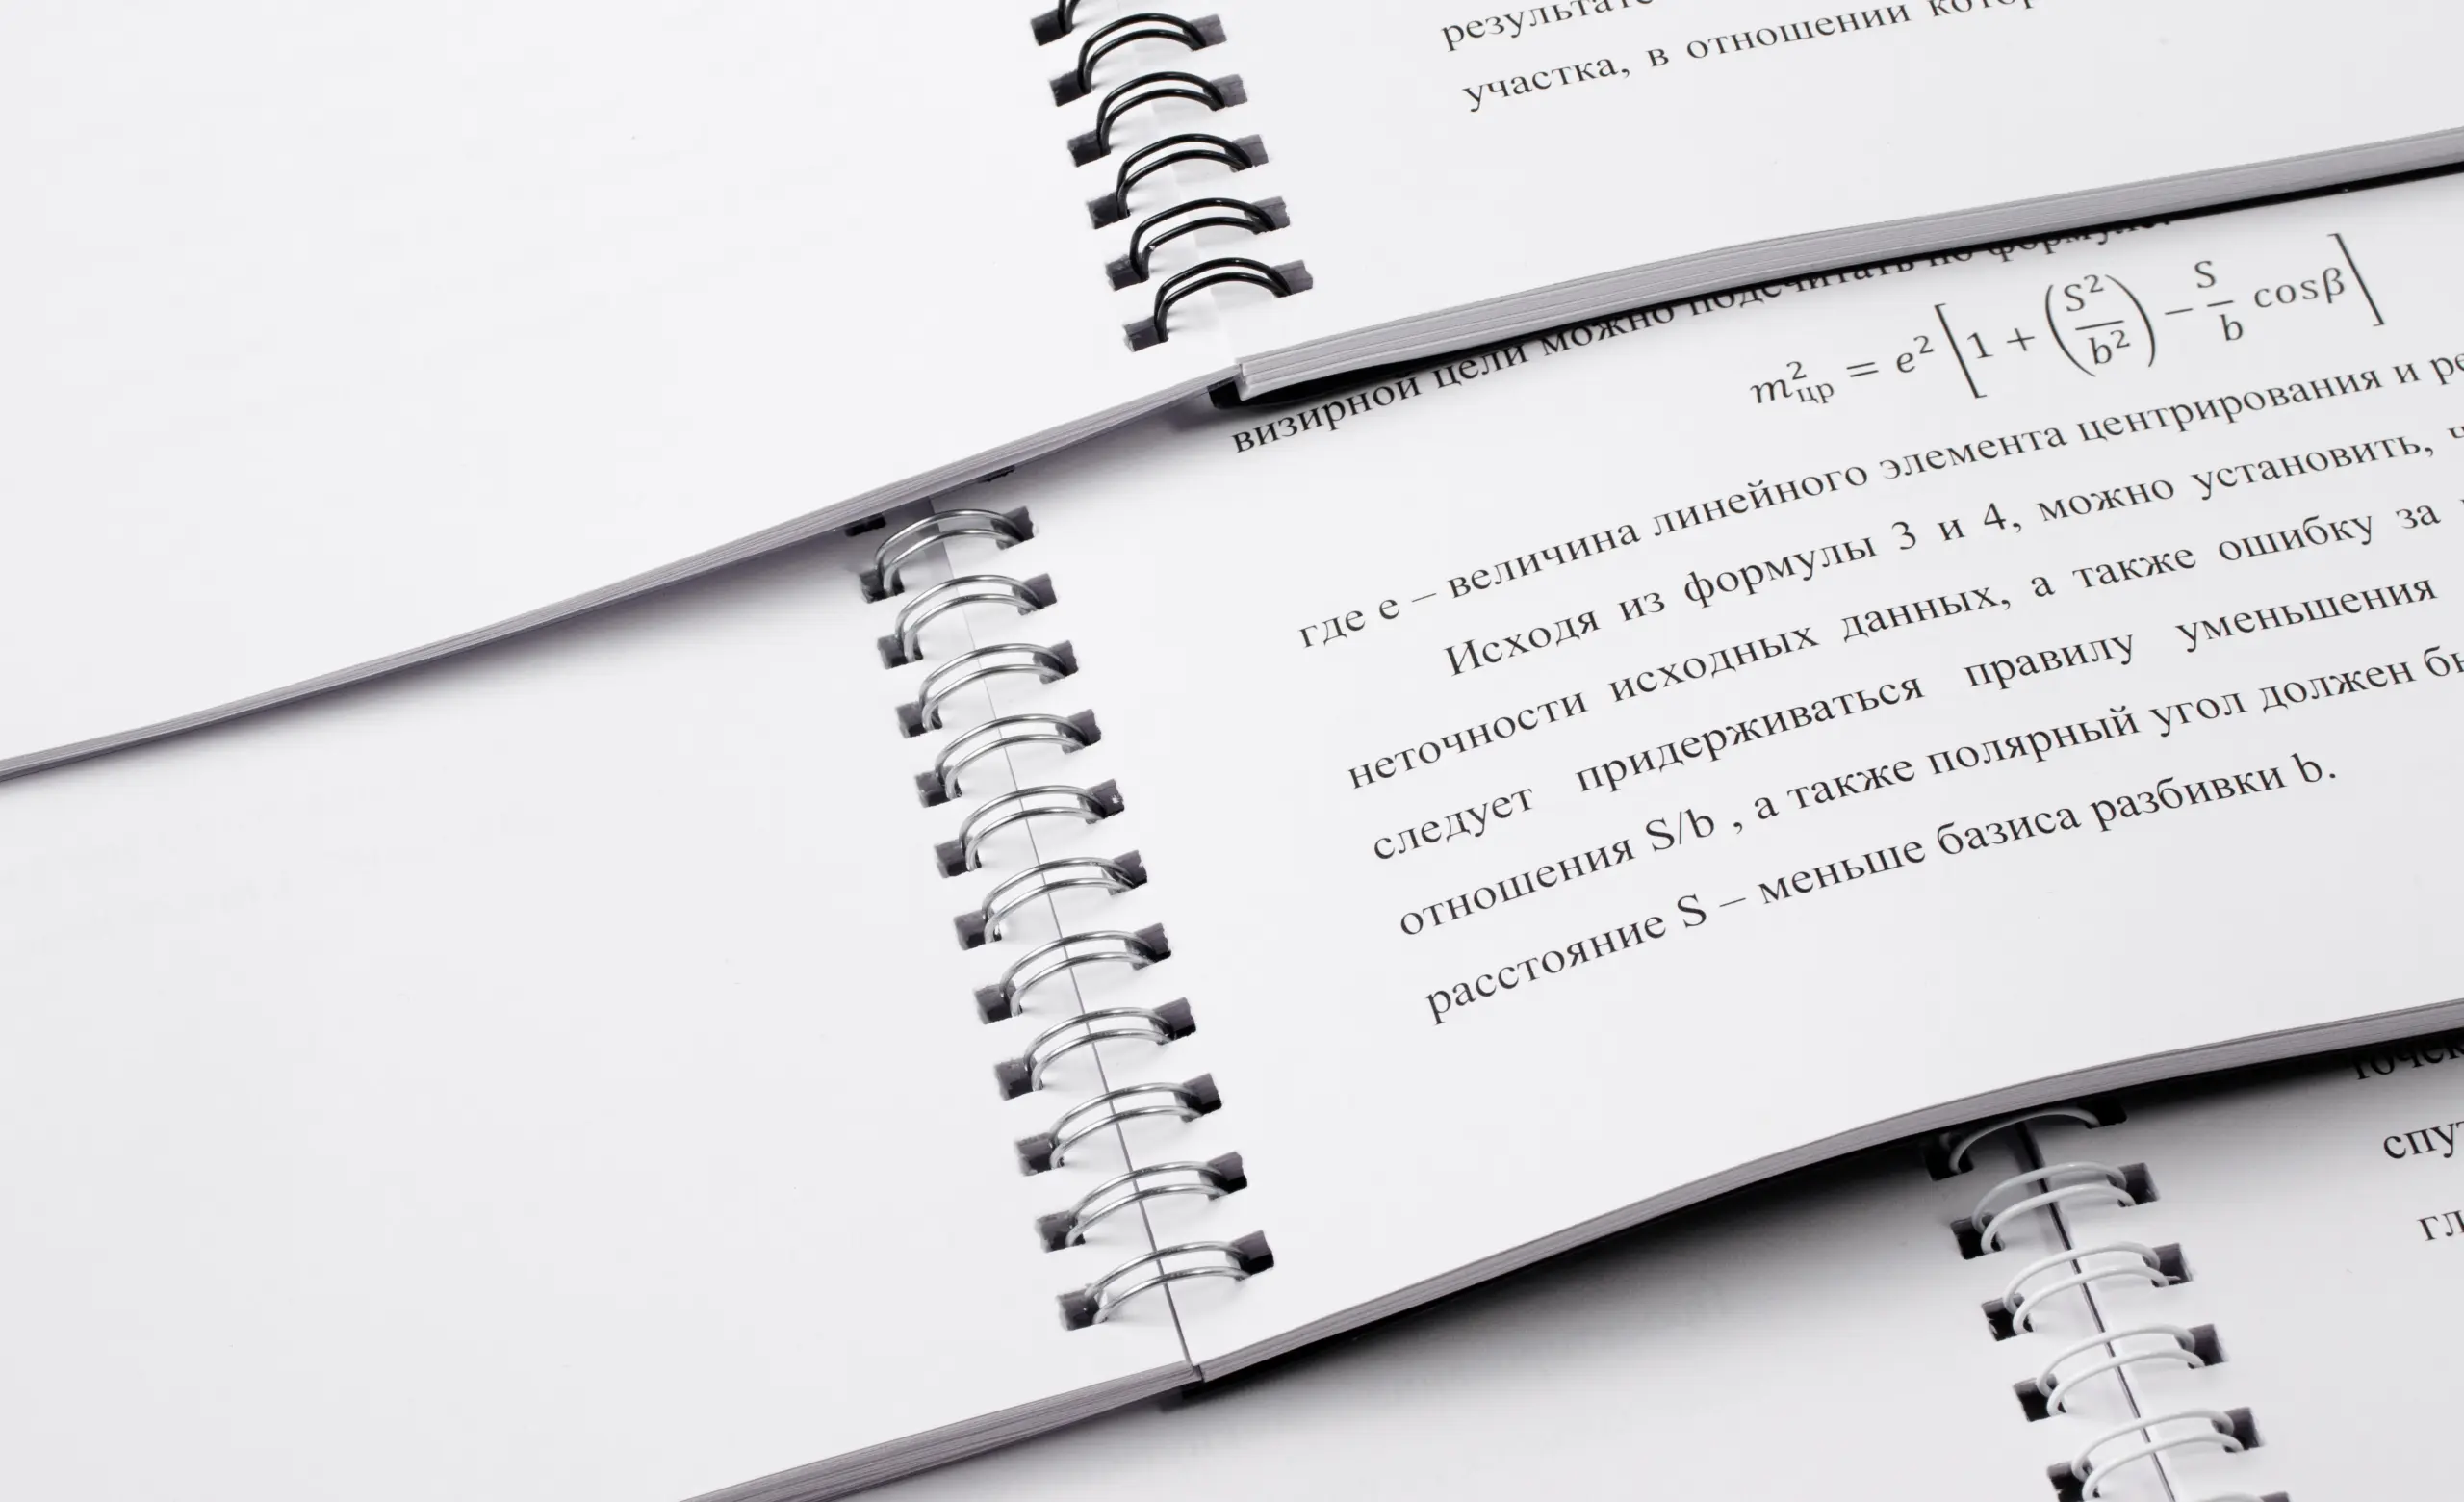 участка, в отношении
визирной цели можно подсчитать по формуле:
m²цр = e² [1 + (S²/b²) − S/b cosβ]
где е – величина линейного элемента центрирования и
Исходя из формулы 3 и 4, можно установить,
неточности исходных данных, а также ошибку за
следует придерживаться правилу уменьшения
отношения S/b , а также полярный угол должен
расстояние S – меньше базиса разбивки b.